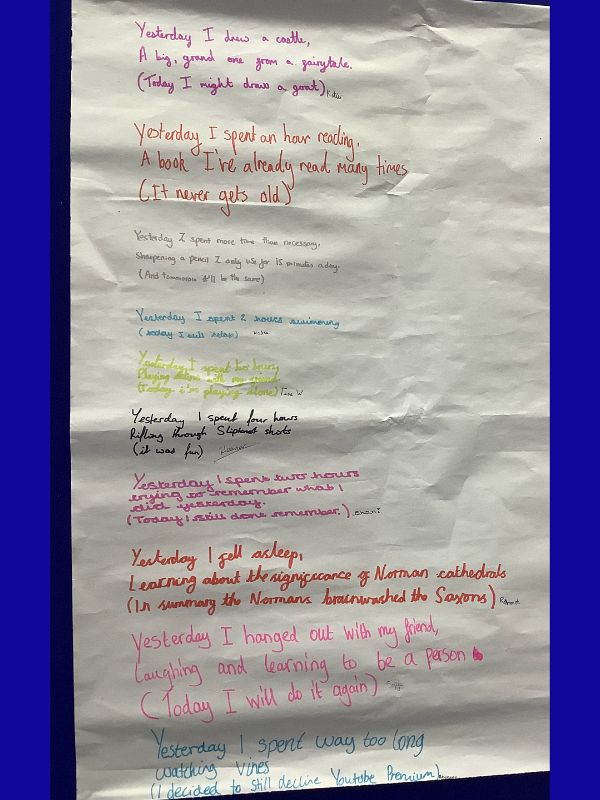 Yesterday I drew a castle,
A big, grand one from a fairytale.
(Today I might draw a goat) Katie
Yesterday I spent an hour reading,
A book I've already read many times
(It never gets old)
Yesterday I spent more time than necessary,
Sharpening a pencil I only use for 15 minutes a day.
(And tommorow it'll be the same)
Yesterday I spent 2 hours swimming
(today I will relax) Katie
Yesterday I spent two hours,
Playing alone with my
(Today i'm playing alone) W
Yesterday I spent four hours
Rifling through Slipknot shirts
(it was fun)
Yesterday I spent two hours
trying to remember what I
did yesterday.
(Today I still dont remember.)
Yesterday I fell asleep,
Learning about the significance of Norman cathedrals
(In summary the Normans brainwashed the Saxons)
Yesterday I hanged out with my friend,
Laughing and learning to be a person
(Today I will do it again)
Yesterday I spent way too long
watching Vines
(I decided to still decline Youtube Premium)